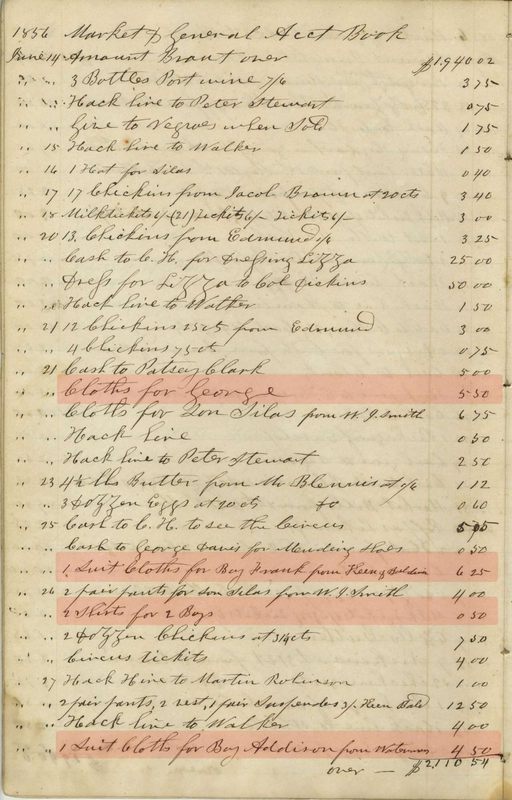 1856 Market & General Acct Book
June 14 Amount Braut over $1,940 02
" " 3 Bottles Port wine 7/6 3 75
" " Hack hire to Peter Stewart 0 75
" " Give to Negroes when Sold 1 75
" 15 Hack hire to Walker 1 50
" 16 1 Hat for Silas 0 40
" 17 17 Chickins from Jacob Brown at 20 cts 3 40
" 18 Milktickets 6/ (21) Tickets 6/ Tickets 6/ 3 00
" 20 13 Chickins from Edmund 3 25
" " Cash to C. H. for Dressing Lizza 25 00
" " Dress for Lizza to Col Dickins 50 00
" " Hack hire to Walker 1 50
" 21 12 Chickins 25 cts from Edmund 3 00
" " 4 Chickins 75 cts 0 75
" 21 Cash to Patsey Clark 5 00
" " Cloths for George 5 50
" " Cloths for Son Silas from W. J. Smith 6 75
" " Hack hire 0 50
" " Hack hire to Peter Stewart 2 50
" 23 4½ lbs Butter from Mr at 1/6 1 12
" " 3 Dozzen Eggs at 20 cts Do 0 60
" 25 Cash to C. H. to see the Circus
" " Cash to George Daves for Mending Shoes 0 50
" " 1 Suit Cloths for Boy Frank from Keen & Baldwin 6 25
" 26 2 pair pants for son Silas from W. J. Smith 4 00
" " 2 Shirts for 2 Boys 0 50
" " 2 Dozzen Chickins at 3¼ cts 7 50
" " Circus tickets 4 00
" 27 Hack Hire to Martin Robinson 1 00
" " 2 pair pants, 2 vest, 1 pair Suspenders 3/. Keen Bald 12 50
" " Hack hire to Walker 4 00
" " 1 Suit Cloths for Boy Addison from 4 50
over — $2,110 54